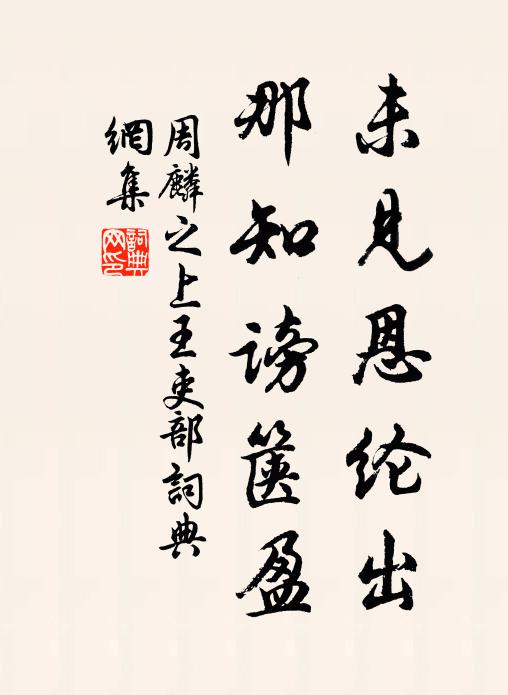 未见恩纶出
那知谤箧盈
周麟之上王吏部詞典
網集
詞典
网印